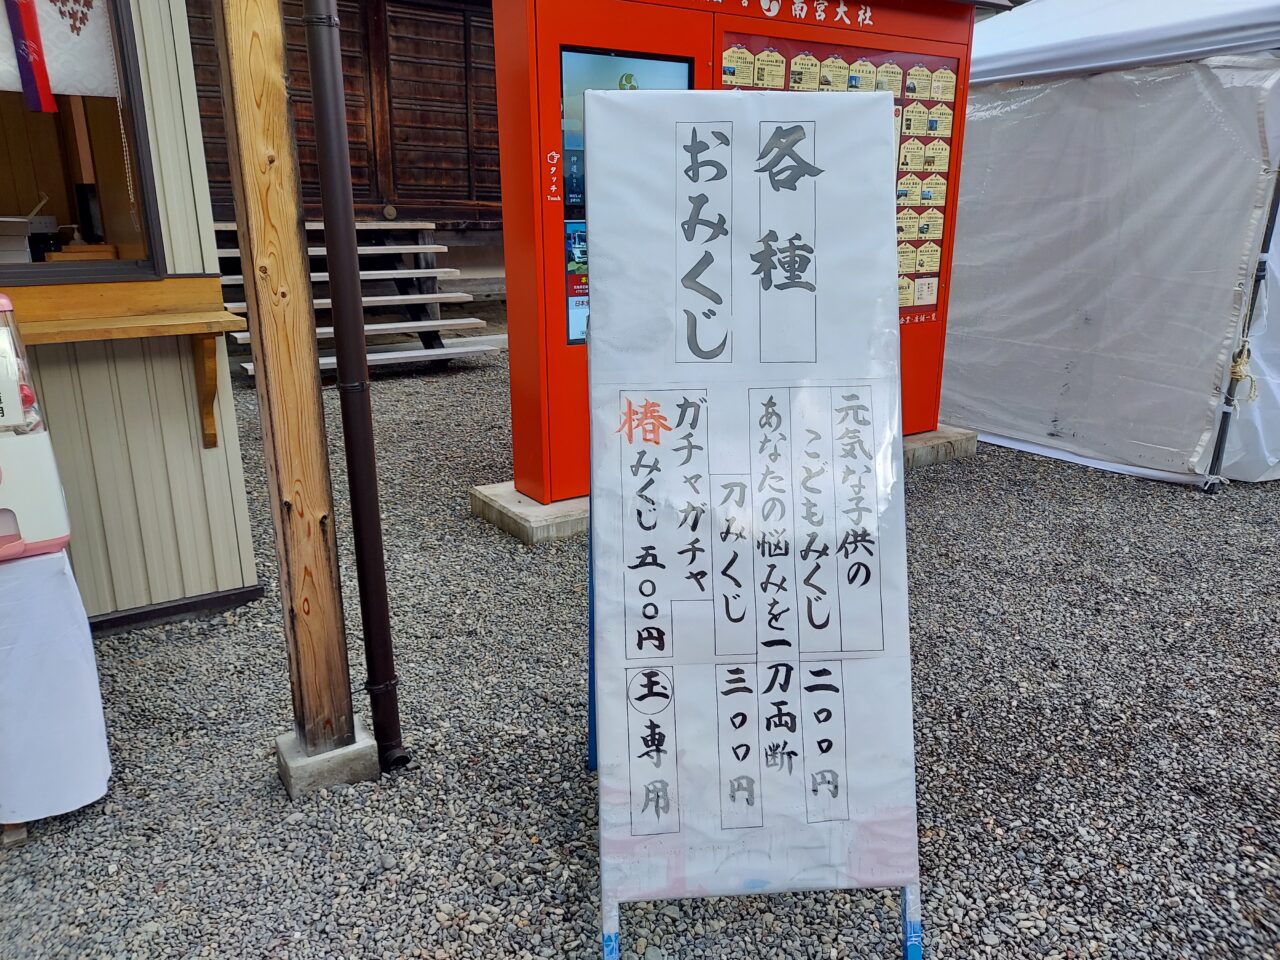 南宮大社
タッチ
Touch
各種
おみくじ
元気な子供の
こどもみくじ 二〇〇円
あなたの悩みを一刀両断
刀みくじ 三〇〇円
ガチャガチャ
椿みくじ 五〇〇円
玉専用
企業・店舗一覧